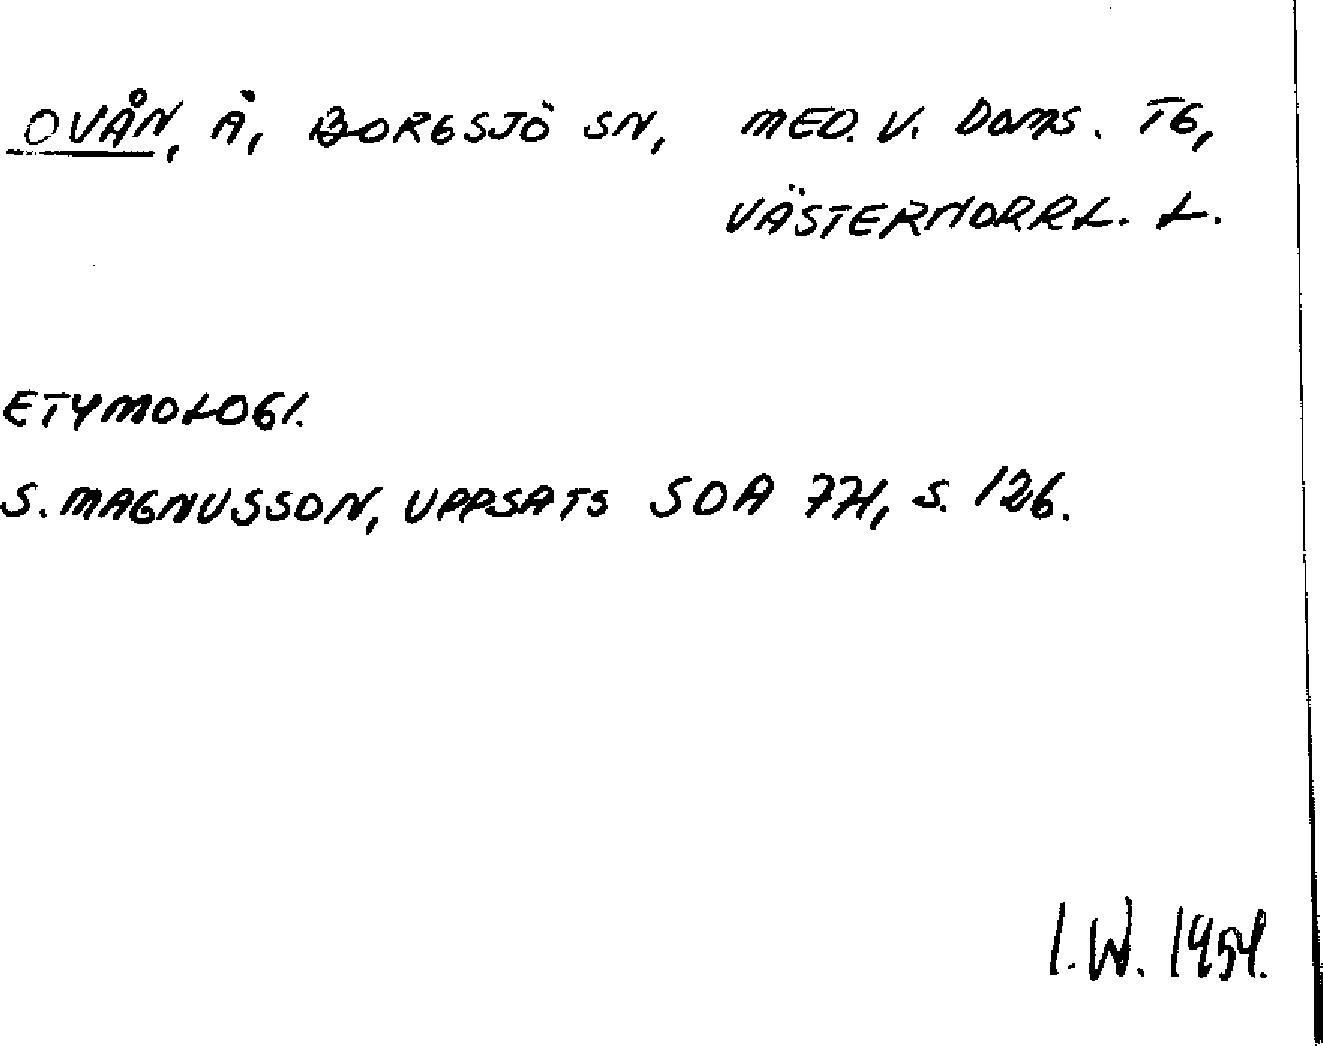 OVÅN, Å, BORGSJÖ SN, MED. V. DOMS. TG,
VÄSTERNORRL. L.
ETYMOLOGI.
S. MAGNUSSON, UPPSATS SOA 771, S. 126.
I.W. 1954.